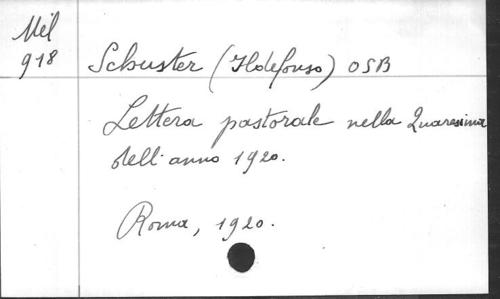 Mél
918
Schuster (Ildefonso) OSB
Lettera pastorale nella Quaresima
dell'anno 1920.
Roma, 1920.